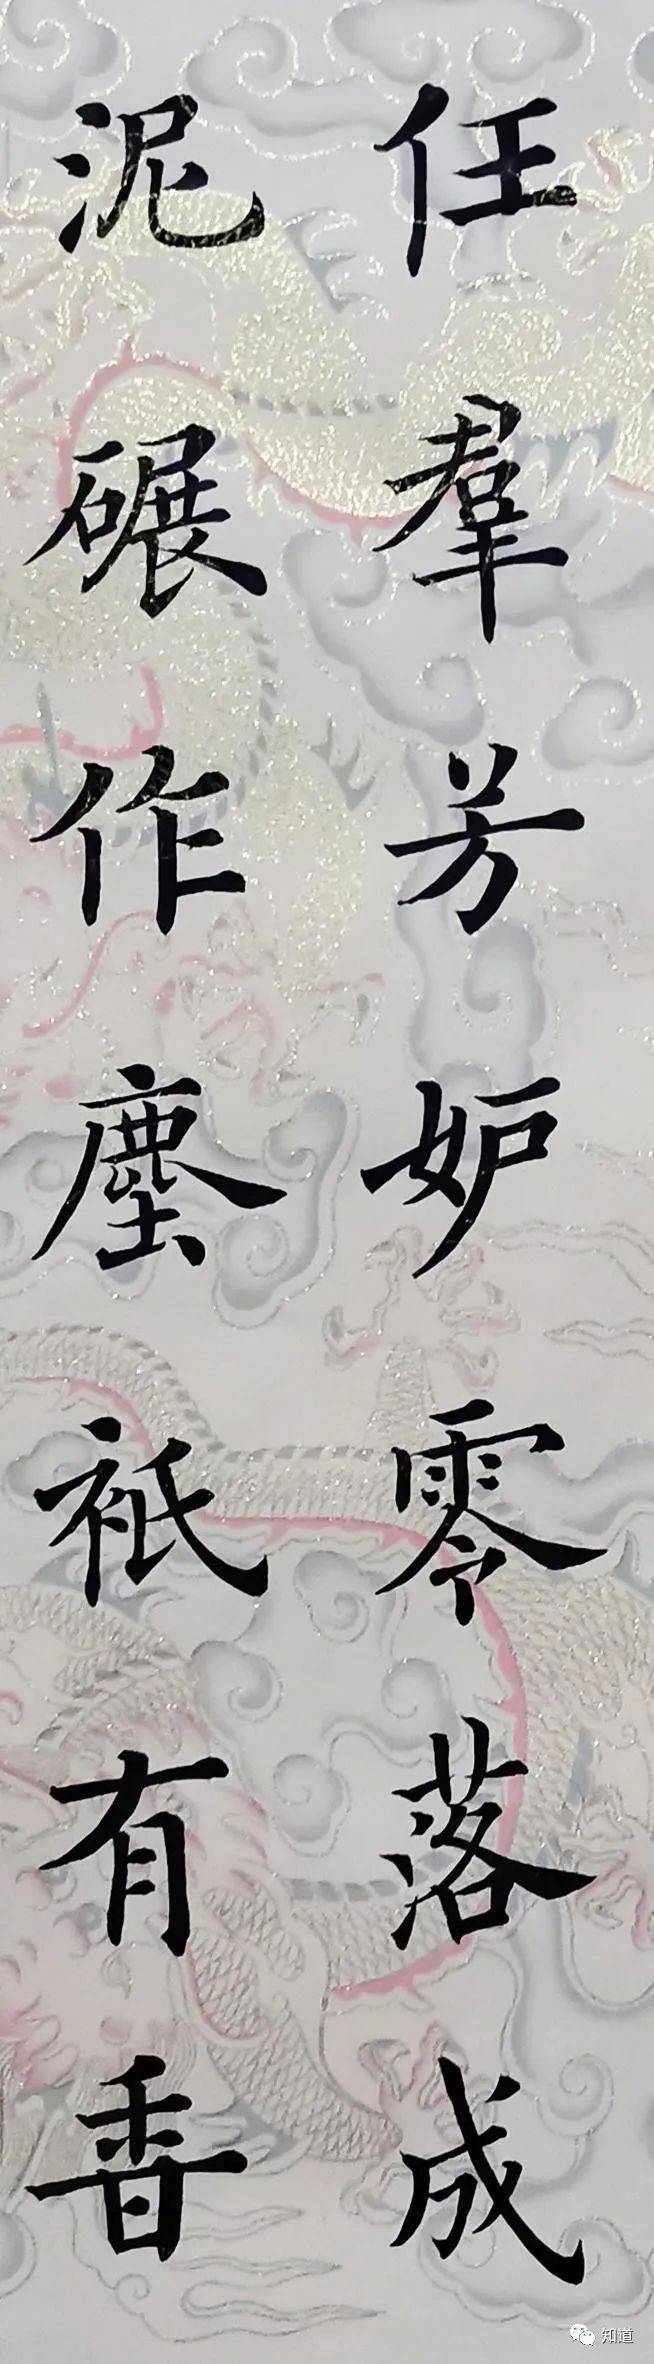 任羣芳妒零落成
泥碾作塵衹有香
知道